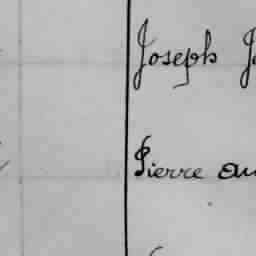 Joseph
Pierre